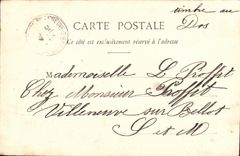 timbre au
Dos
CARTE POSTALE
Ce côté est exclusivement réservé à l'adresse
Mademoiselle L. Proffit
Chez Monsieur Proffit
Villeneuve sur Bellot
S et M